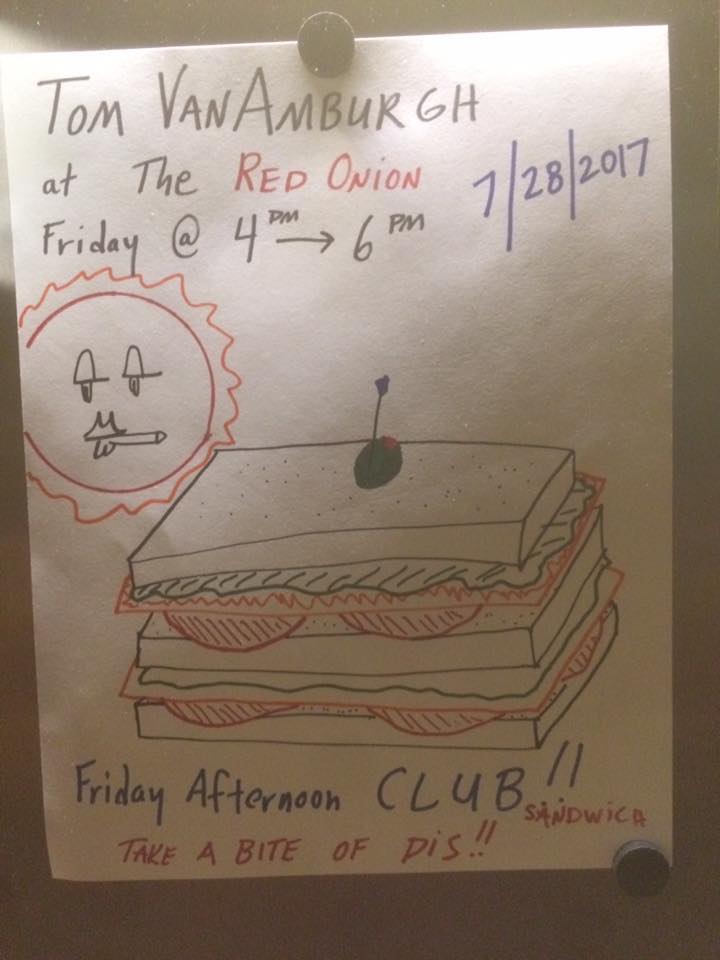 Tom VanAmburgh
at The Red Onion
7/28/2017
Friday @ 4PM → 6PM
Friday Afternoon CLUB!!
SANDWICH
TAKE A BITE OF DIS!!